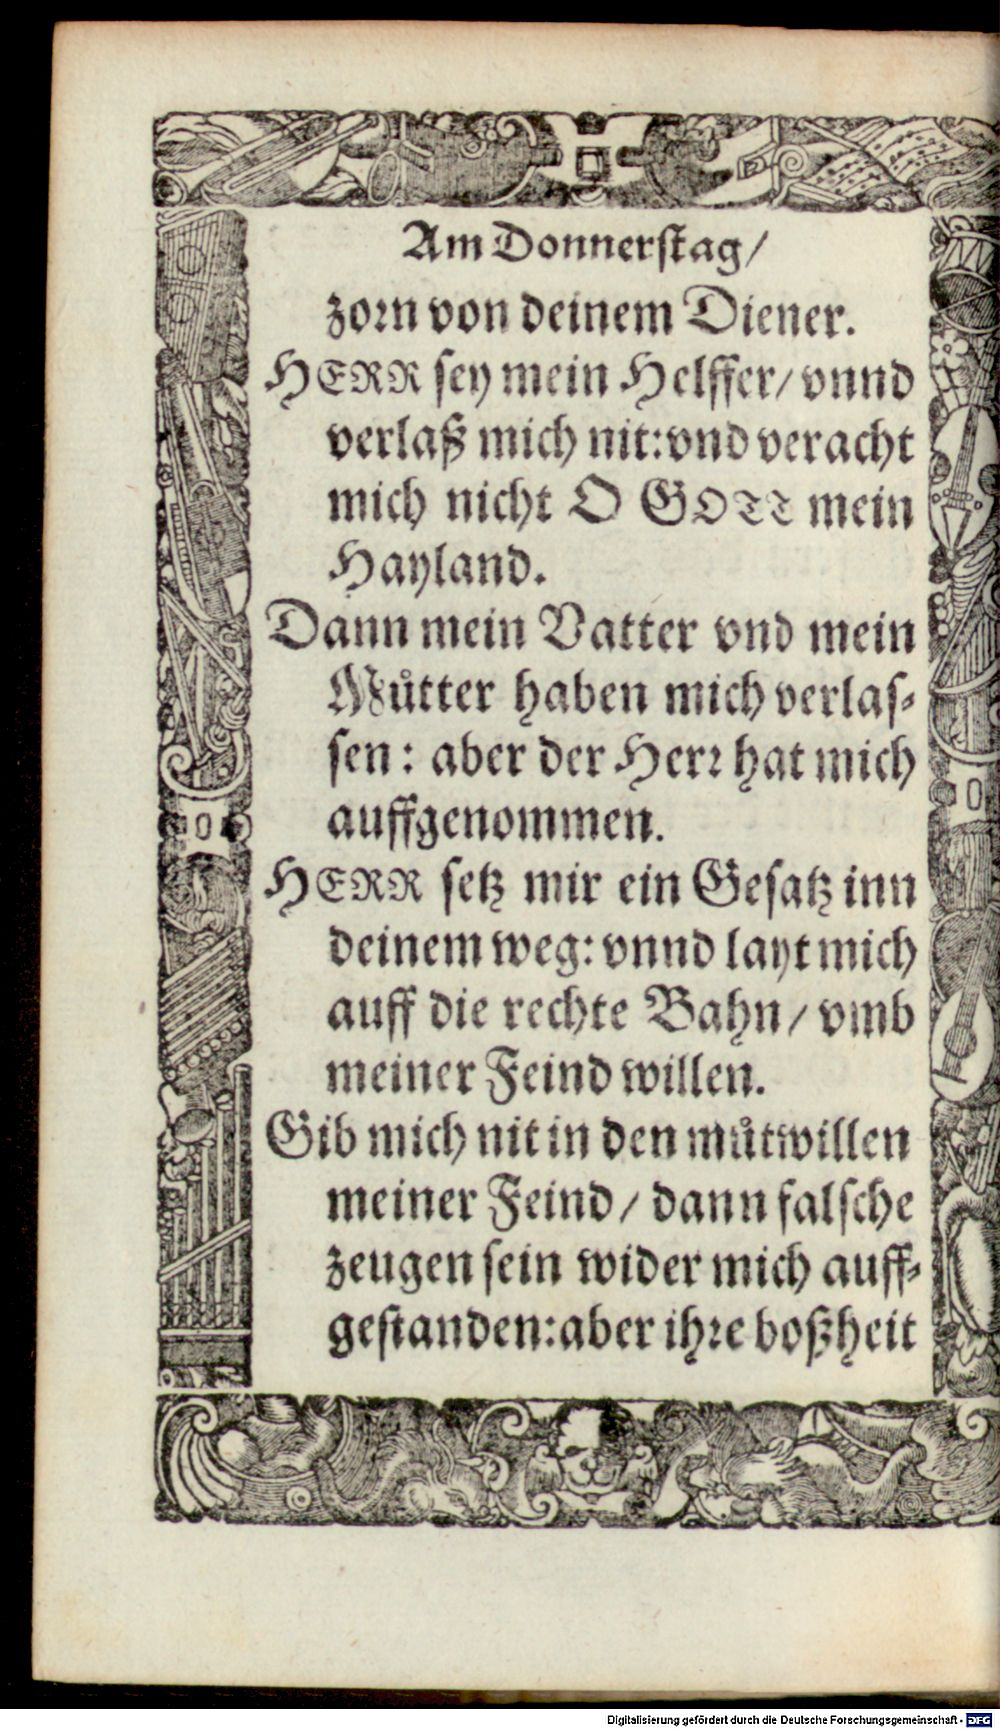 Am Donnerstag/
zorn von deinem Diener.
HERR sey mein Helffer/ vnnd
verlaß mich nit: vnd veracht
mich nicht O GOTT mein
Hayland.
Dann mein Vatter vnd mein
Muͦtter haben mich verlas-
sen: aber der Herr hat mich
auffgenommen.
HERR setz mir ein Gesatz inn
deinem weg: vnnd layt mich
auff die rechte Bahn/ vmb
meiner Feind willen.
Gib mich nit in den muͦtwillen
meiner Feind/ dann falsche
zeugen sein wider mich auff-
gestanden: aber ihre boßheit
Digitalisierung gefördert durch die Deutsche Forschungsgemeinschaft - DFG